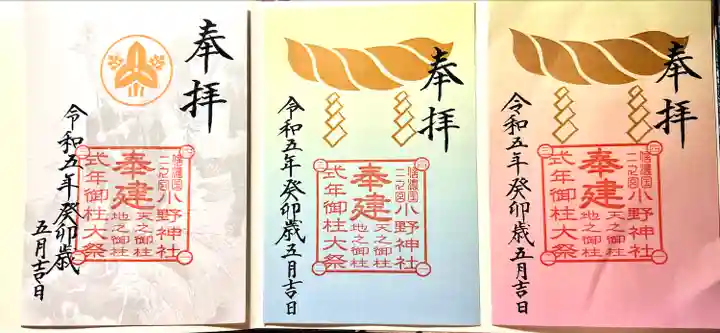 奉拝
信濃国二之宮
小野神社
天之御柱
地之御柱
奉建
式年御柱大祭
令和五年癸卯歳
五月吉日
奉拝
信濃国二之宮
小野神社
天之御柱
地之御柱
奉建
式年御柱大祭
令和五年癸卯歳五月吉日
奉拝
信濃国二之宮
小野神社
天之御柱
地之御柱
奉建
式年御柱大祭
令和五年癸卯歳五月吉日